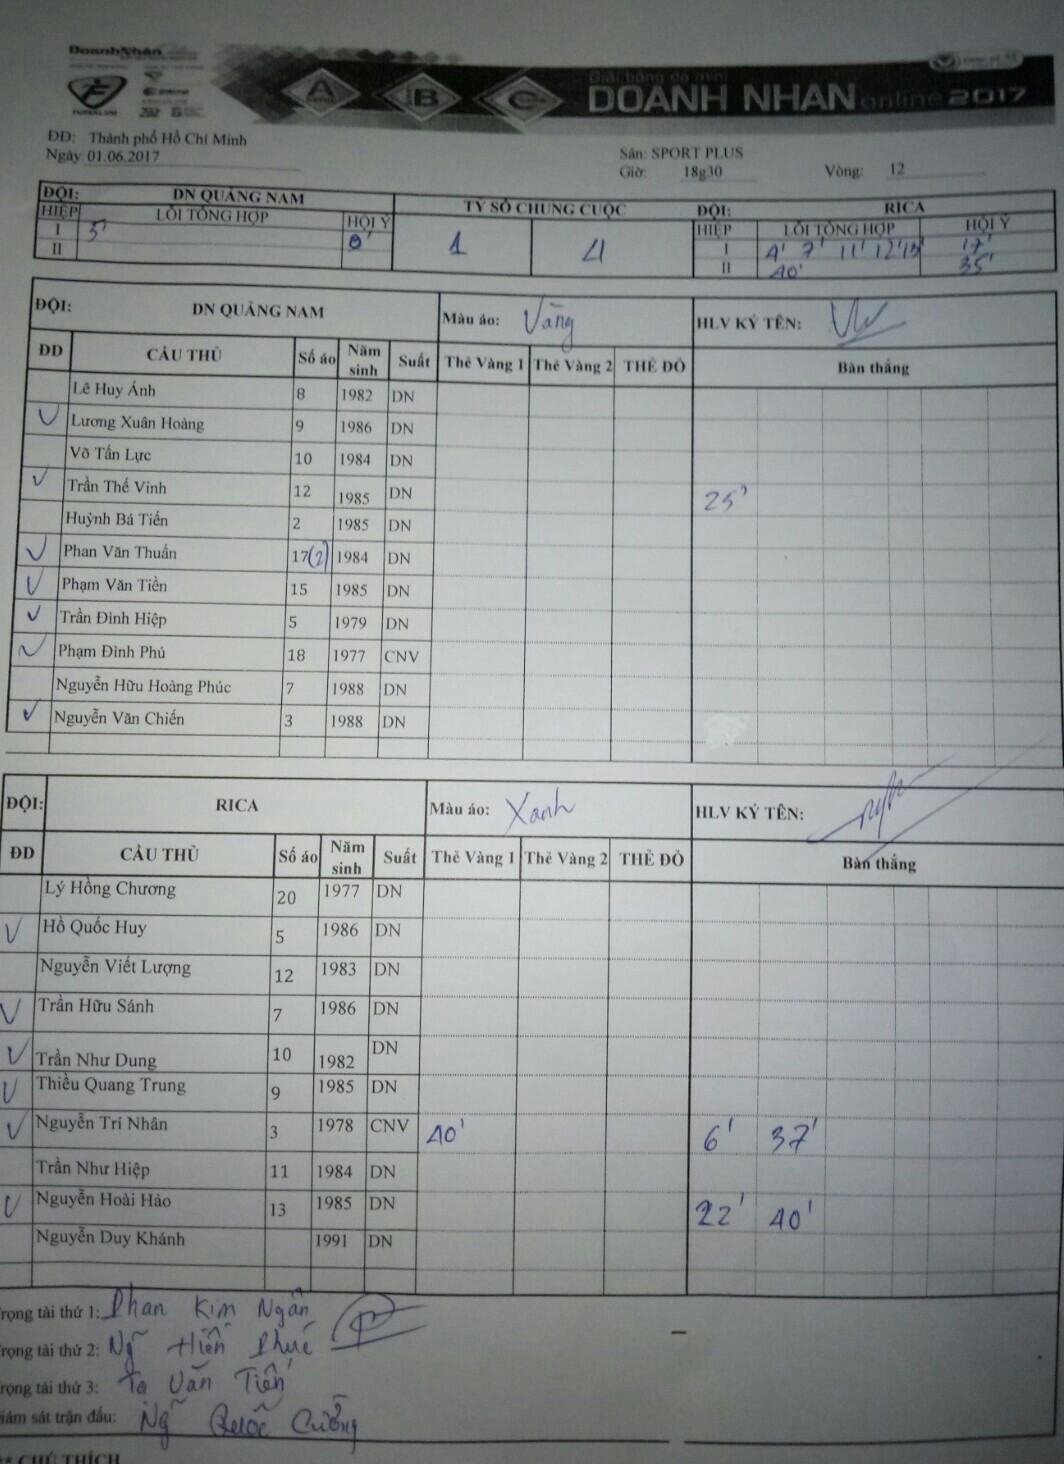 DoanhNhân
A B C
Giải bóng đá mini
DOANH NHÂN online 2017
ĐĐ: Thành phố Hồ Chí Minh
Ngày 01.06.2017
Sân: SPORT PLUS
Giờ: 18g30 Vòng: 12
ĐỘI: DN QUẢNG NAM TỶ SỐ CHUNG CUỘC ĐỘI: RICA
HIỆP LỖI TỔNG HỢP HỘI Ý 1 4 HIỆP LỖI TỔNG HỢP HỘI Ý
I 5' I 4' 7' 11' 12' 17'
II II 40' 35'
ĐỘI: DN QUẢNG NAM Màu áo: Vàng HLV KÝ TÊN:
ĐD CẦU THỦ Số áo Năm sinh Suất Thẻ Vàng 1 Thẻ Vàng 2 THẺ ĐỎ Bàn thắng
Lê Huy Ánh 8 1982 DN
V Lương Xuân Hoàng 9 1986 DN
Võ Tấn Lực 10 1984 DN
V Trần Thế Vinh 12 1985 DN 25'
Huỳnh Bá Tiến 2 1985 DN
V Phan Văn Thuấn 17(2) 1984 DN
V Phạm Văn Tiền 15 1985 DN
V Trần Đình Hiệp 5 1979 DN
V Phạm Đình Phú 18 1977 CNV
Nguyễn Hữu Hoàng Phúc 7 1988 DN
V Nguyễn Văn Chiến 3 1988 DN
ĐỘI: RICA Màu áo: Xanh HLV KÝ TÊN:
ĐD CẦU THỦ Số áo Năm sinh Suất Thẻ Vàng 1 Thẻ Vàng 2 THẺ ĐỎ Bàn thắng
Lý Hồng Chương 20 1977 DN
V Hồ Quốc Huy 5 1986 DN
Nguyễn Viết Lượng 12 1983 DN
V Trần Hữu Sánh 7 1986 DN
V Trần Như Dung 10 1982 DN
V Thiều Quang Trung 9 1985 DN
V Nguyễn Trí Nhân 3 1978 CNV 40' 6' 37'
Trần Như Hiệp 11 1984 DN
V Nguyễn Hoài Hảo 13 1985 DN 22' 40'
Nguyễn Duy Khánh 1991 DN
rọng tài thứ 1: Phan Kim Ngân
rọng tài thứ 2: Ng~ Hiền Phúc
rọng tài thứ 3: Tạ Văn Tiến
iám sát trận đấu: Ng~ Quốc Cường
** CHÚ THÍCH